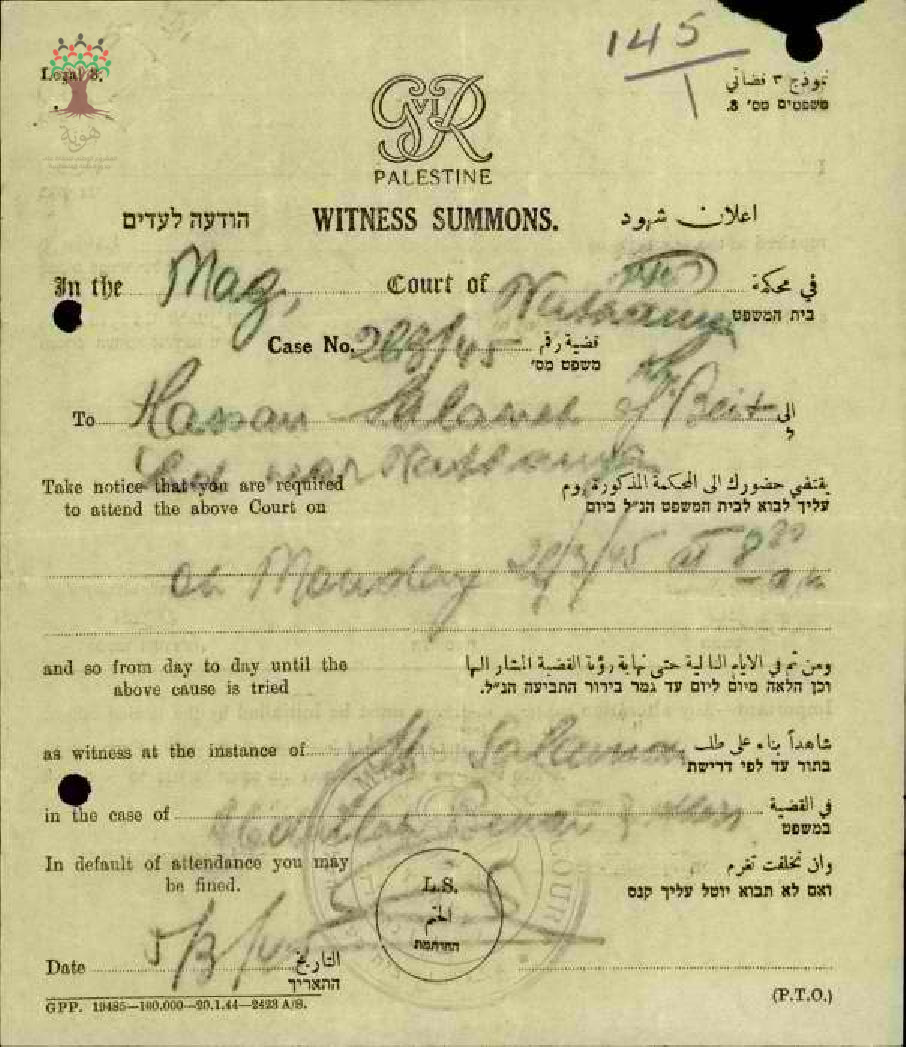 145
Legal 8.
نموذج ٣ قضائي
משפטים מס' 8.
هوية
GVIR
PALESTINE
הודעה לעדים WITNESS SUMMONS. اعلان شهود
In the Mag, Court of Nathanya في محكمة
בית המשפט
Case No. /45 قضية رقم
משפט מס'
To Hassan of Beit الى
ל
Lid near Nathanya
Take notice that you are required يقتضي حضورك الى المحكمة المذكورة يوم
to attend the above Court on עליך לבוא לבית המשפט הנ"ל ביום
on Monday /3/45 at 8
a.m
and so from day to day until the ومن ثم في الايام التالية حتى نهاية رؤية القضية المشار اليها
above cause is tried וכן הלאה מיום ליום עד גמר בירור התביעה הנ"ל.
as witness at the instance of شاهداً بناء على طلب
בתור עד לפי דרישת
in the case of في القضية
במשפט
In default of attendance you may وان تخلفت تغرم
be fined. ואם לא תבוא יוטל עליך קנס
L.S.
الختم
החותמת
Date 5/3/45 التاريخ
התאריך
GPP. 19485—100.000—20.1.44—2423 A/S.
(P.T.O.)